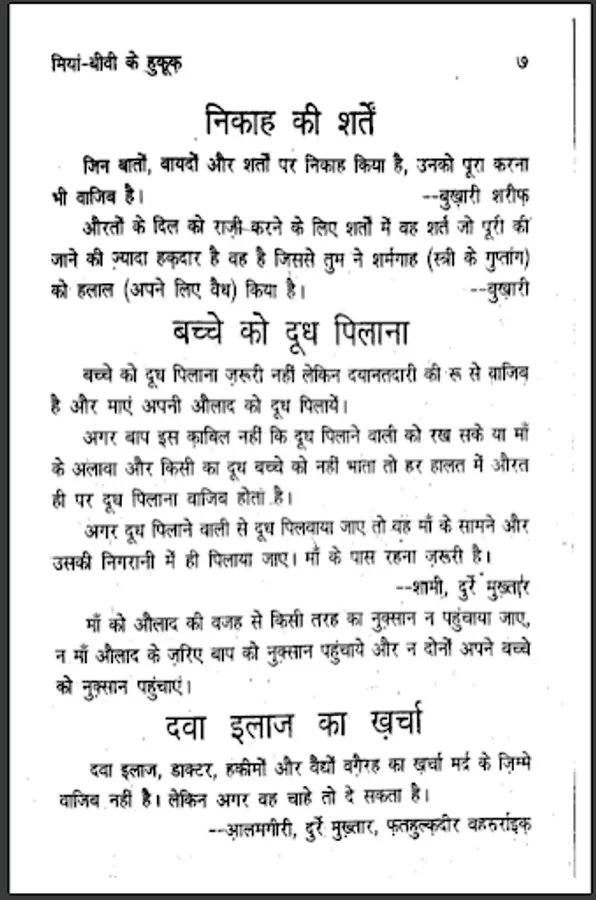 मियां-बीवी के हुकूक़ ७
निकाह की शर्तें
जिन बातों, वायदों और शर्तों पर निकाह किया है, उनको पूरा करना
भी वाजिब है। --बुख़ारी शरीफ़
औरतों के दिल को राज़ी करने के लिए शर्तों में वह शर्त जो पूरी की
जाने की ज़्यादा हक़दार है वह है जिससे तुम ने शर्मगाह (स्त्री के गुप्तांग)
को हलाल (अपने लिए वैध) किया है। --बुख़ारी
बच्चे को दूध पिलाना
बच्चे को दूध पिलाना ज़रूरी नहीं लेकिन दयानतदारी की रू से वाजिब
है और माएं अपनी औलाद को दूध पिलायें।
अगर बाप इस क़ाबिल नहीं कि दूध पिलाने वाली को रख सके या माँ
के अलावा और किसी का दूध बच्चे को नहीं भाता तो हर हालत में औरत
ही पर दूध पिलाना वाजिब होता है।
अगर दूध पिलाने वाली से दूध पिलवाया जाए तो वह माँ के सामने और
उसकी निगरानी में ही पिलाया जाए। माँ के पास रहना ज़रूरी है।
--शामी, दुर्रे मुख़्तार
माँ को औलाद की वजह से किसी तरह का नुक़्सान न पहुंचाया जाए,
न माँ औलाद के ज़रिए बाप को नुक़्सान पहुंचाये और न दोनों अपने बच्चे
को नुक़्सान पहुंचाएं।
दवा इलाज का ख़र्चा
दवा इलाज, डाक्टर, हकीमों और वैद्यों वग़ैरह का ख़र्चा मर्द के ज़िम्मे
वाजिब नहीं है। लेकिन अगर वह चाहे तो दे सकता है।
--आलमगीरी, दुर्रे मुख़्तार, फ़तहुल्क़दीर वहरुर्राइक़